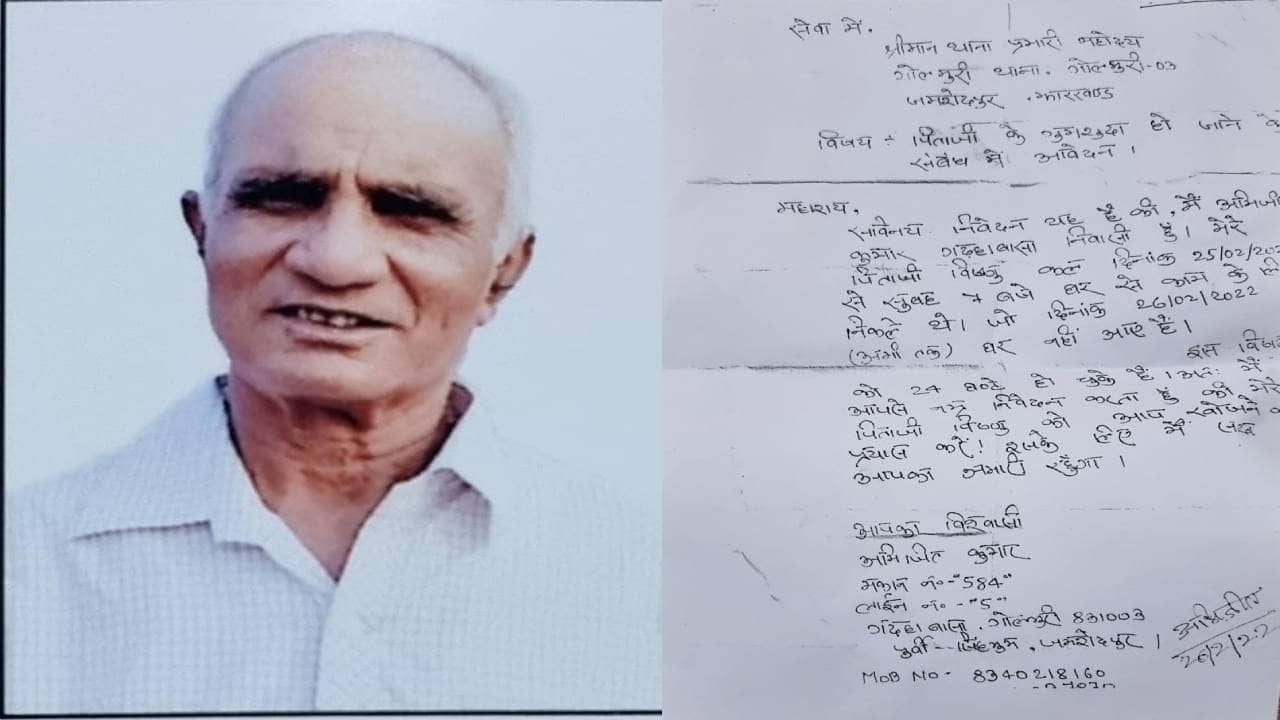 सेवा में,
श्रीमान थाना प्रभारी महोदय
गोलमुरी थाना, गोलमुरी-03
जमशेदपुर, झारखण्ड
विषय :- पिताजी के गुमशुदा हो जाने के
संबंध में आवेदन।
महाशय,
सविनय निवेदन यह है की, मैं अभिजी
कुमार गदहाबासा निवासी हूँ। मेरे
पिताजी विष्णु कल दिनांक 25/02/202
से सुबह 7 बजे घर से काम के लि
निकले थे। जो दिनांक 26/02/2022
(अभी तक) घर नहीं आए हैं।
इस विषय
को 24 घण्टे हो चुके हैं। अतः मैं
आपसे नम्र निवेदन करता हूँ की मेरे
पिताजी विष्णु को आप खोजने का
प्रयास करें! इसके लिए मैं सदा
आपका अभारी रहूँगा।
आपका विश्वासी
अभिजित कुमार
मकान नं०-"584"
लाईन नं०-"5"
गदहाबासा, गोलमुरी 831003
पूर्वी सिंहभूम, जमशेदपुर।
MOB NO- 8340218160
अभिजीत
26/2/22